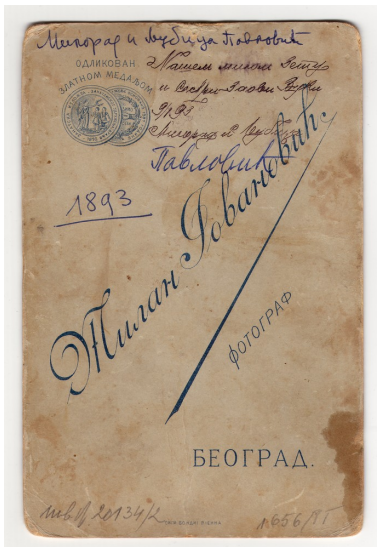 Милорад и Љубица Павловић
ОДЛИКОВАН
ЗЛАТНОМ МЕДАЉОМ
Нашем милом
и
9/I 93
Милорад и Љубица
Павловић
1893
Милан Јовановић.
ФОТОГРАФ
БЕОГРАД.
инв. 20134/2